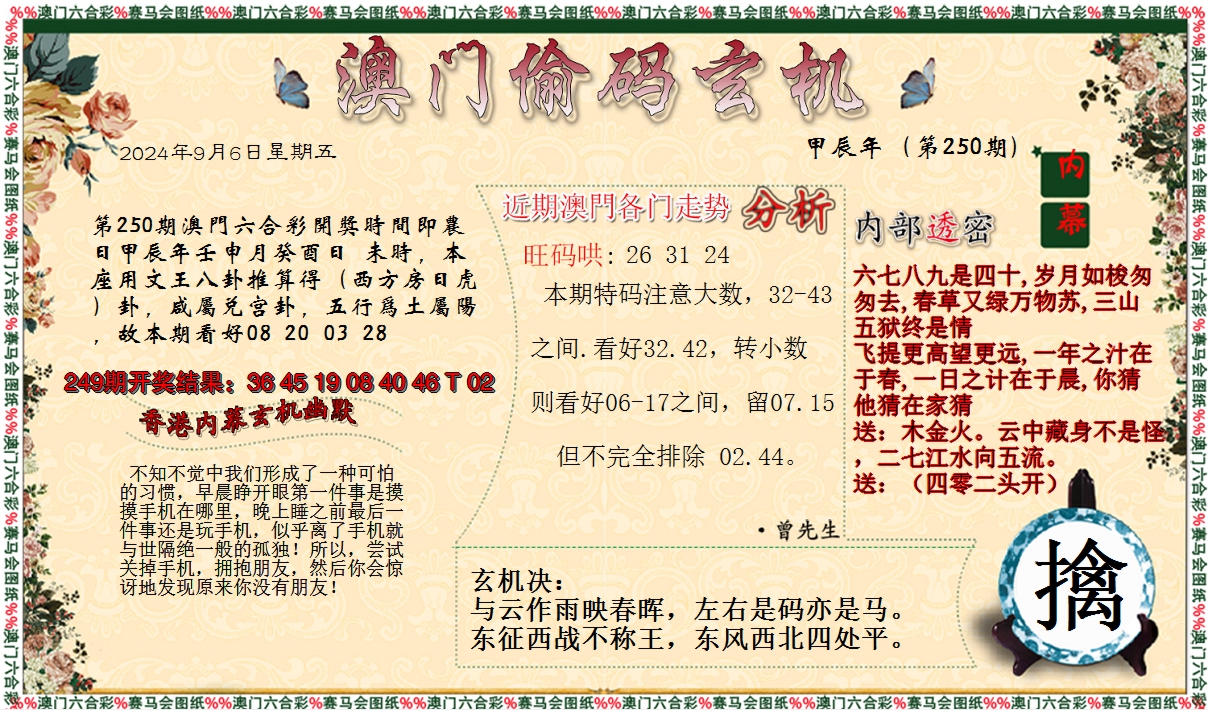 %%澳门六合彩%赛马会图纸%%澳门六合彩%赛马会图纸%%澳门六合彩%赛马会图纸%%澳门六合彩%赛马会图纸%%澳门六合彩%赛马会图纸%%澳门六合彩%赛马会图纸%%
澳门偷码玄机
2024年9月6日星期五
甲辰年（第250期）
第250期澳門六合彩開獎時間即農
日甲辰年壬申月癸酉日 未時，本
座用文王八卦推算得（西方房日虎
）卦，咸屬兑宫卦，五行爲土屬陽
，故本期看好08 20 03 28
249期开奖结果：36 45 19 08 40 46 T 02
香港内幕玄机幽默
不知不觉中我们形成了一种可怕
的习惯，早晨睁开眼第一件事是摸
摸手机在哪里，晚上睡之前最后一
件事还是玩手机，似乎离了手机就
与世隔绝一般的孤独！所以，尝试
关掉手机，拥抱朋友，然后你会惊
讶地发现原来你没有朋友！
近期澳門各门走势 分析
旺码哄：26 31 24
本期特码注意大数，32-43
之间.看好32.42，转小数
则看好06-17之间，留07.15
但不完全排除 02.44。
·曾先生
玄机决：
与云作雨映春晖，左右是码亦是马。
东征西战不称王，东风西北四处平。
内幕
内部透密
六七八九是四十,岁月如梭匆
匆去,春草又绿万物苏,三山
五狱终是情
飞提更高望更远,一年之汁在
于春,一日之计在于晨,你猜
他猜在家猜
送：木金火。云中藏身不是怪
，二七江水向五流。
送：（四零二头开）
擒
%%澳门六合彩%赛马会图纸%%澳门六合彩%赛马会图纸%%澳门六合彩%赛马会图纸%%澳门六合彩%赛马会图纸%%澳门六合彩%赛马会图纸%%澳门六合彩%赛马会图纸%%